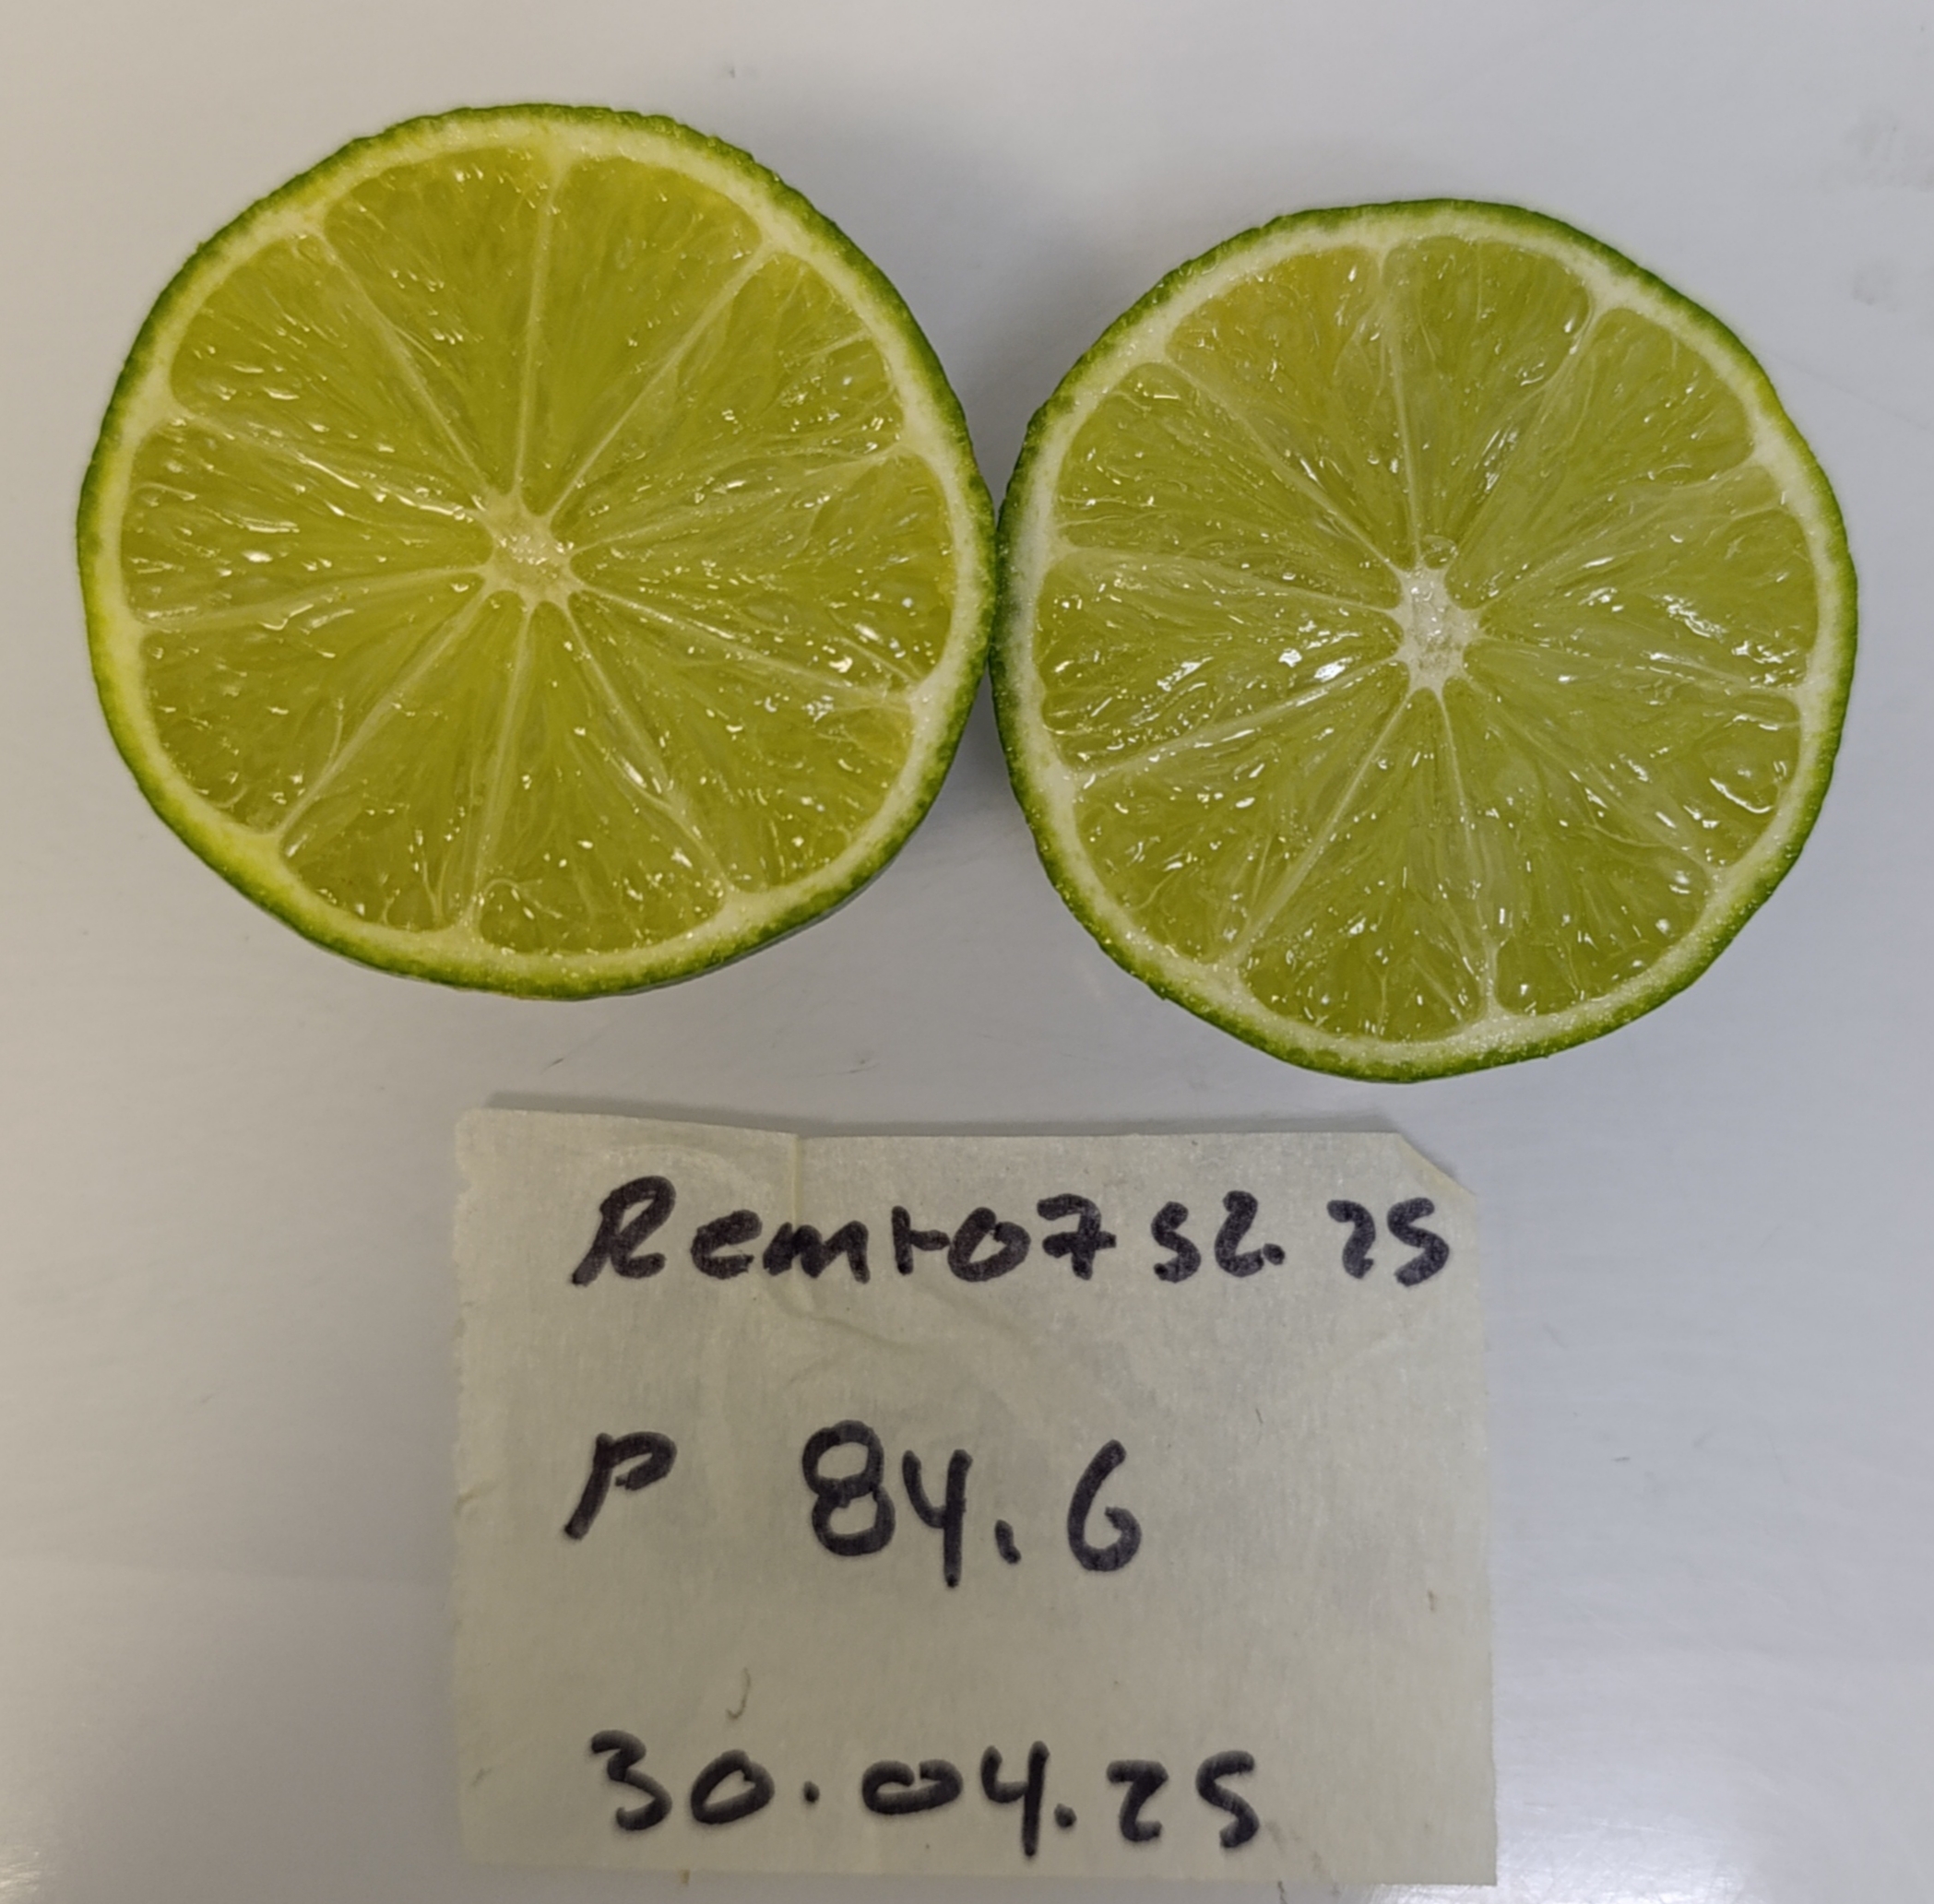 Remto7 S2. 25
P 84.6
30.04.25